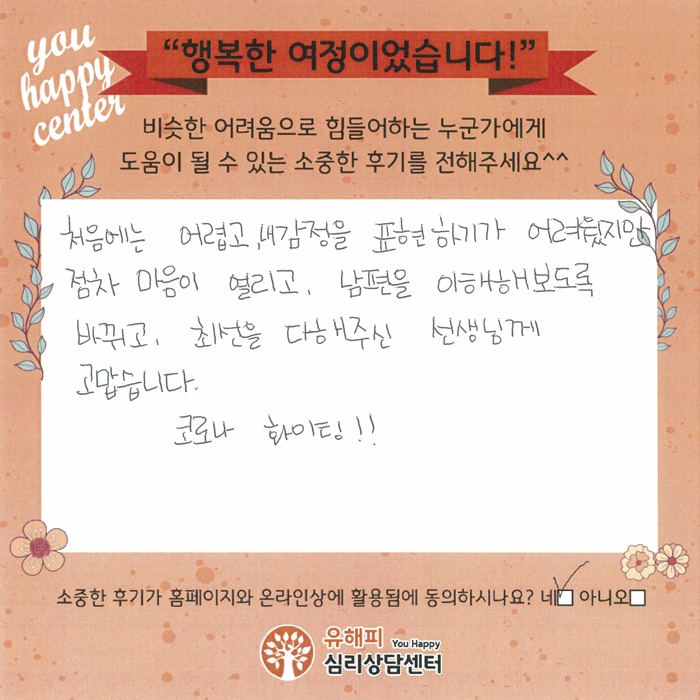 you
happy
center
“행복한 여정이었습니다!”
비슷한 어려움으로 힘들어하는 누군가에게
도움이 될 수 있는 소중한 후기를 전해주세요^^
처음에는 어렵고, 내감정을 표현하기가 어려웠지만
점차 마음이 열리고, 남편을 이해해보도록
바뀌고, 최선을 다해주신 선생님께
고맙습니다.
코로나 화이팅!!
소중한 후기가 홈페이지와 온라인상에 활용됨에 동의하시나요? 네 아니오
유해피 You Happy
심리상담센터